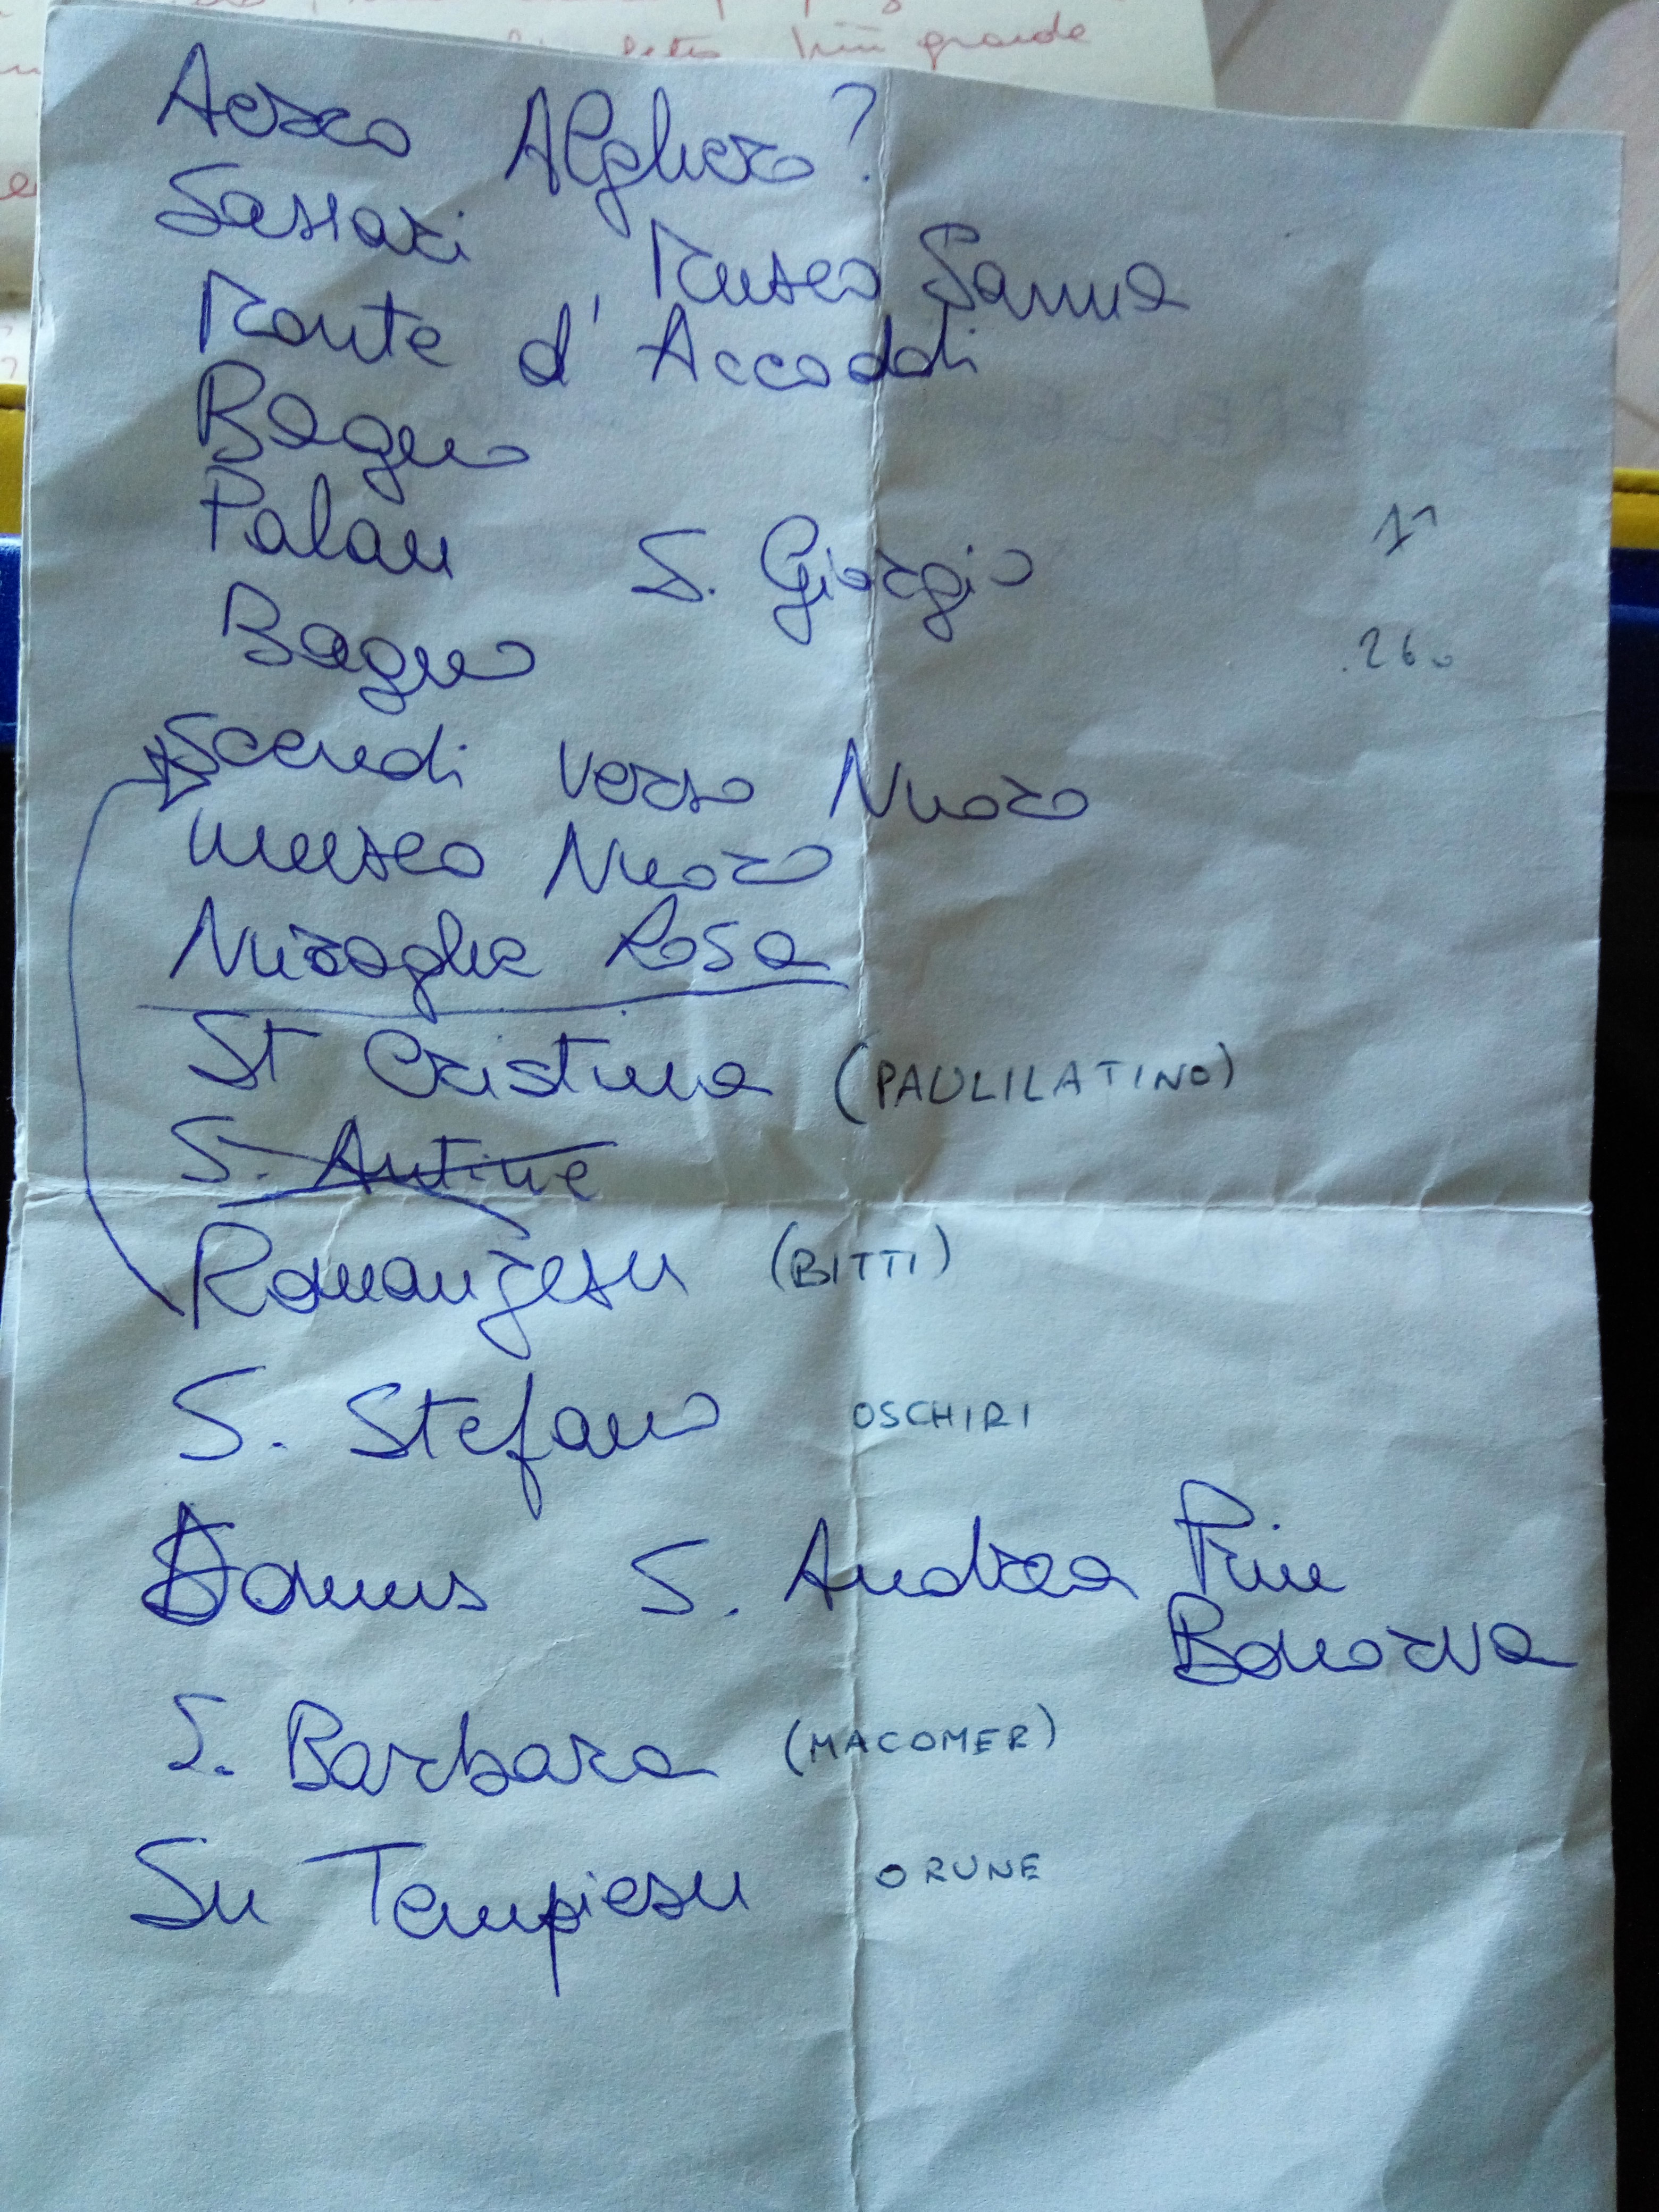 più grande
Aereo Alghero?
Sassari Museo Sanna
Monte d'Accoddi
Bagno
Palau S. Giorgio 11
Bagno 26
Scendi verso Nuoro
Museo Nuoro
Nuraghe Losa
St Cristina (PAULILATINO)
S. Antine
Romanzesu (BITTI)
S. Stefano OSCHIRI
Domus S. Andrea Priu
Bonorva
S. Barbara (MACOMER)
Su Tempiesu ORUNE